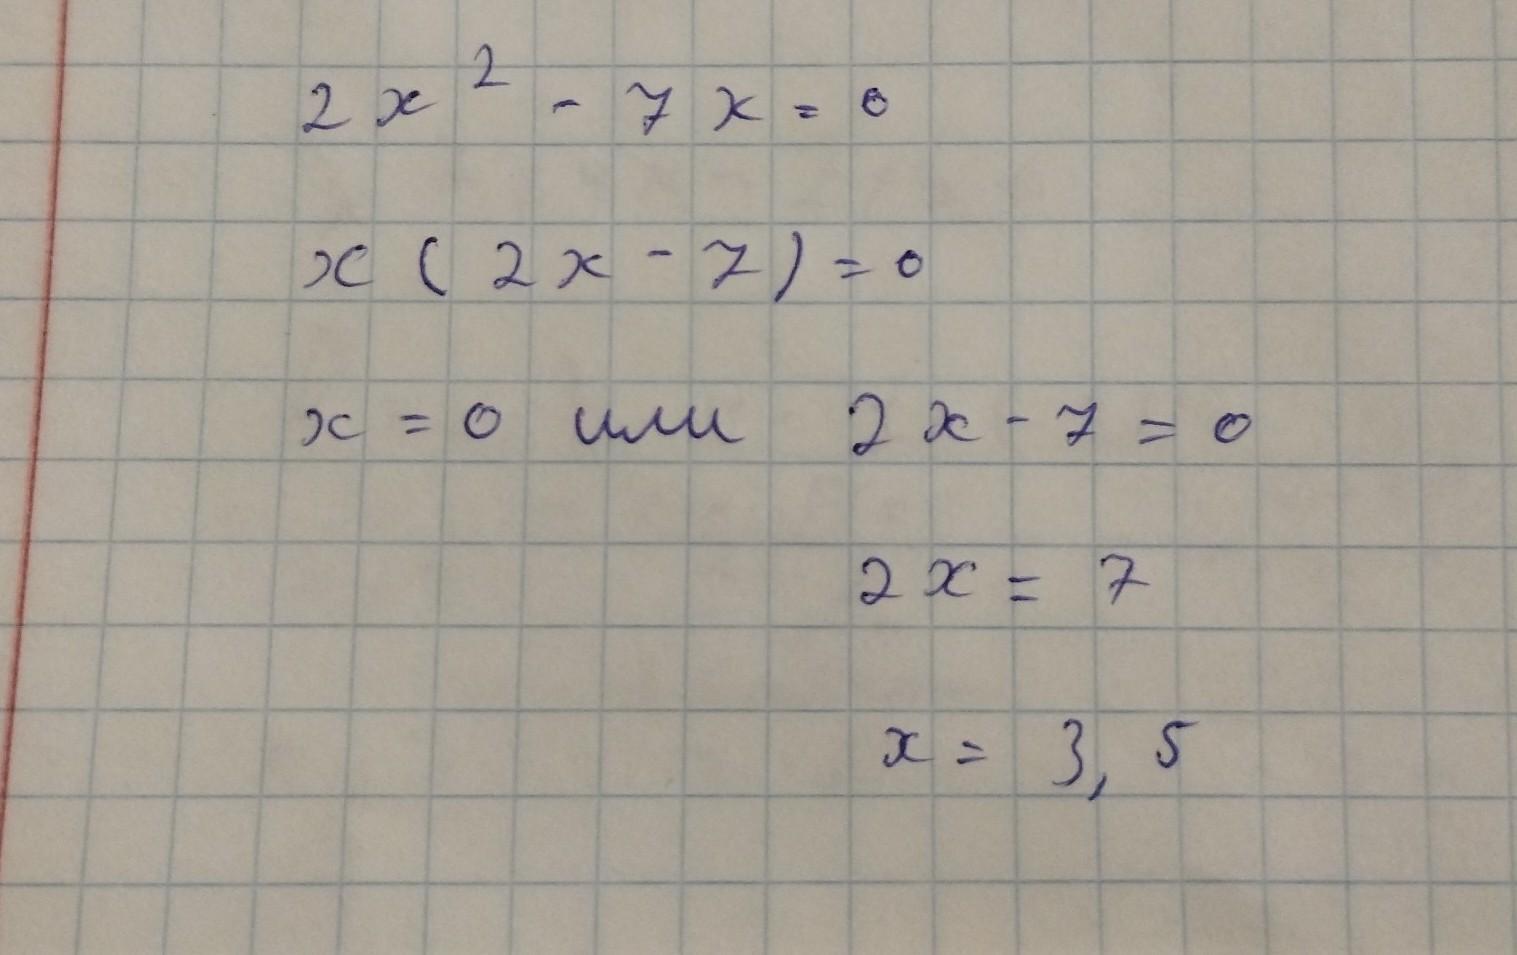 2x² - 7x = 0
x(2x - 7) = 0
x = 0 или 2x - 7 = 0
2x = 7
x = 3,5